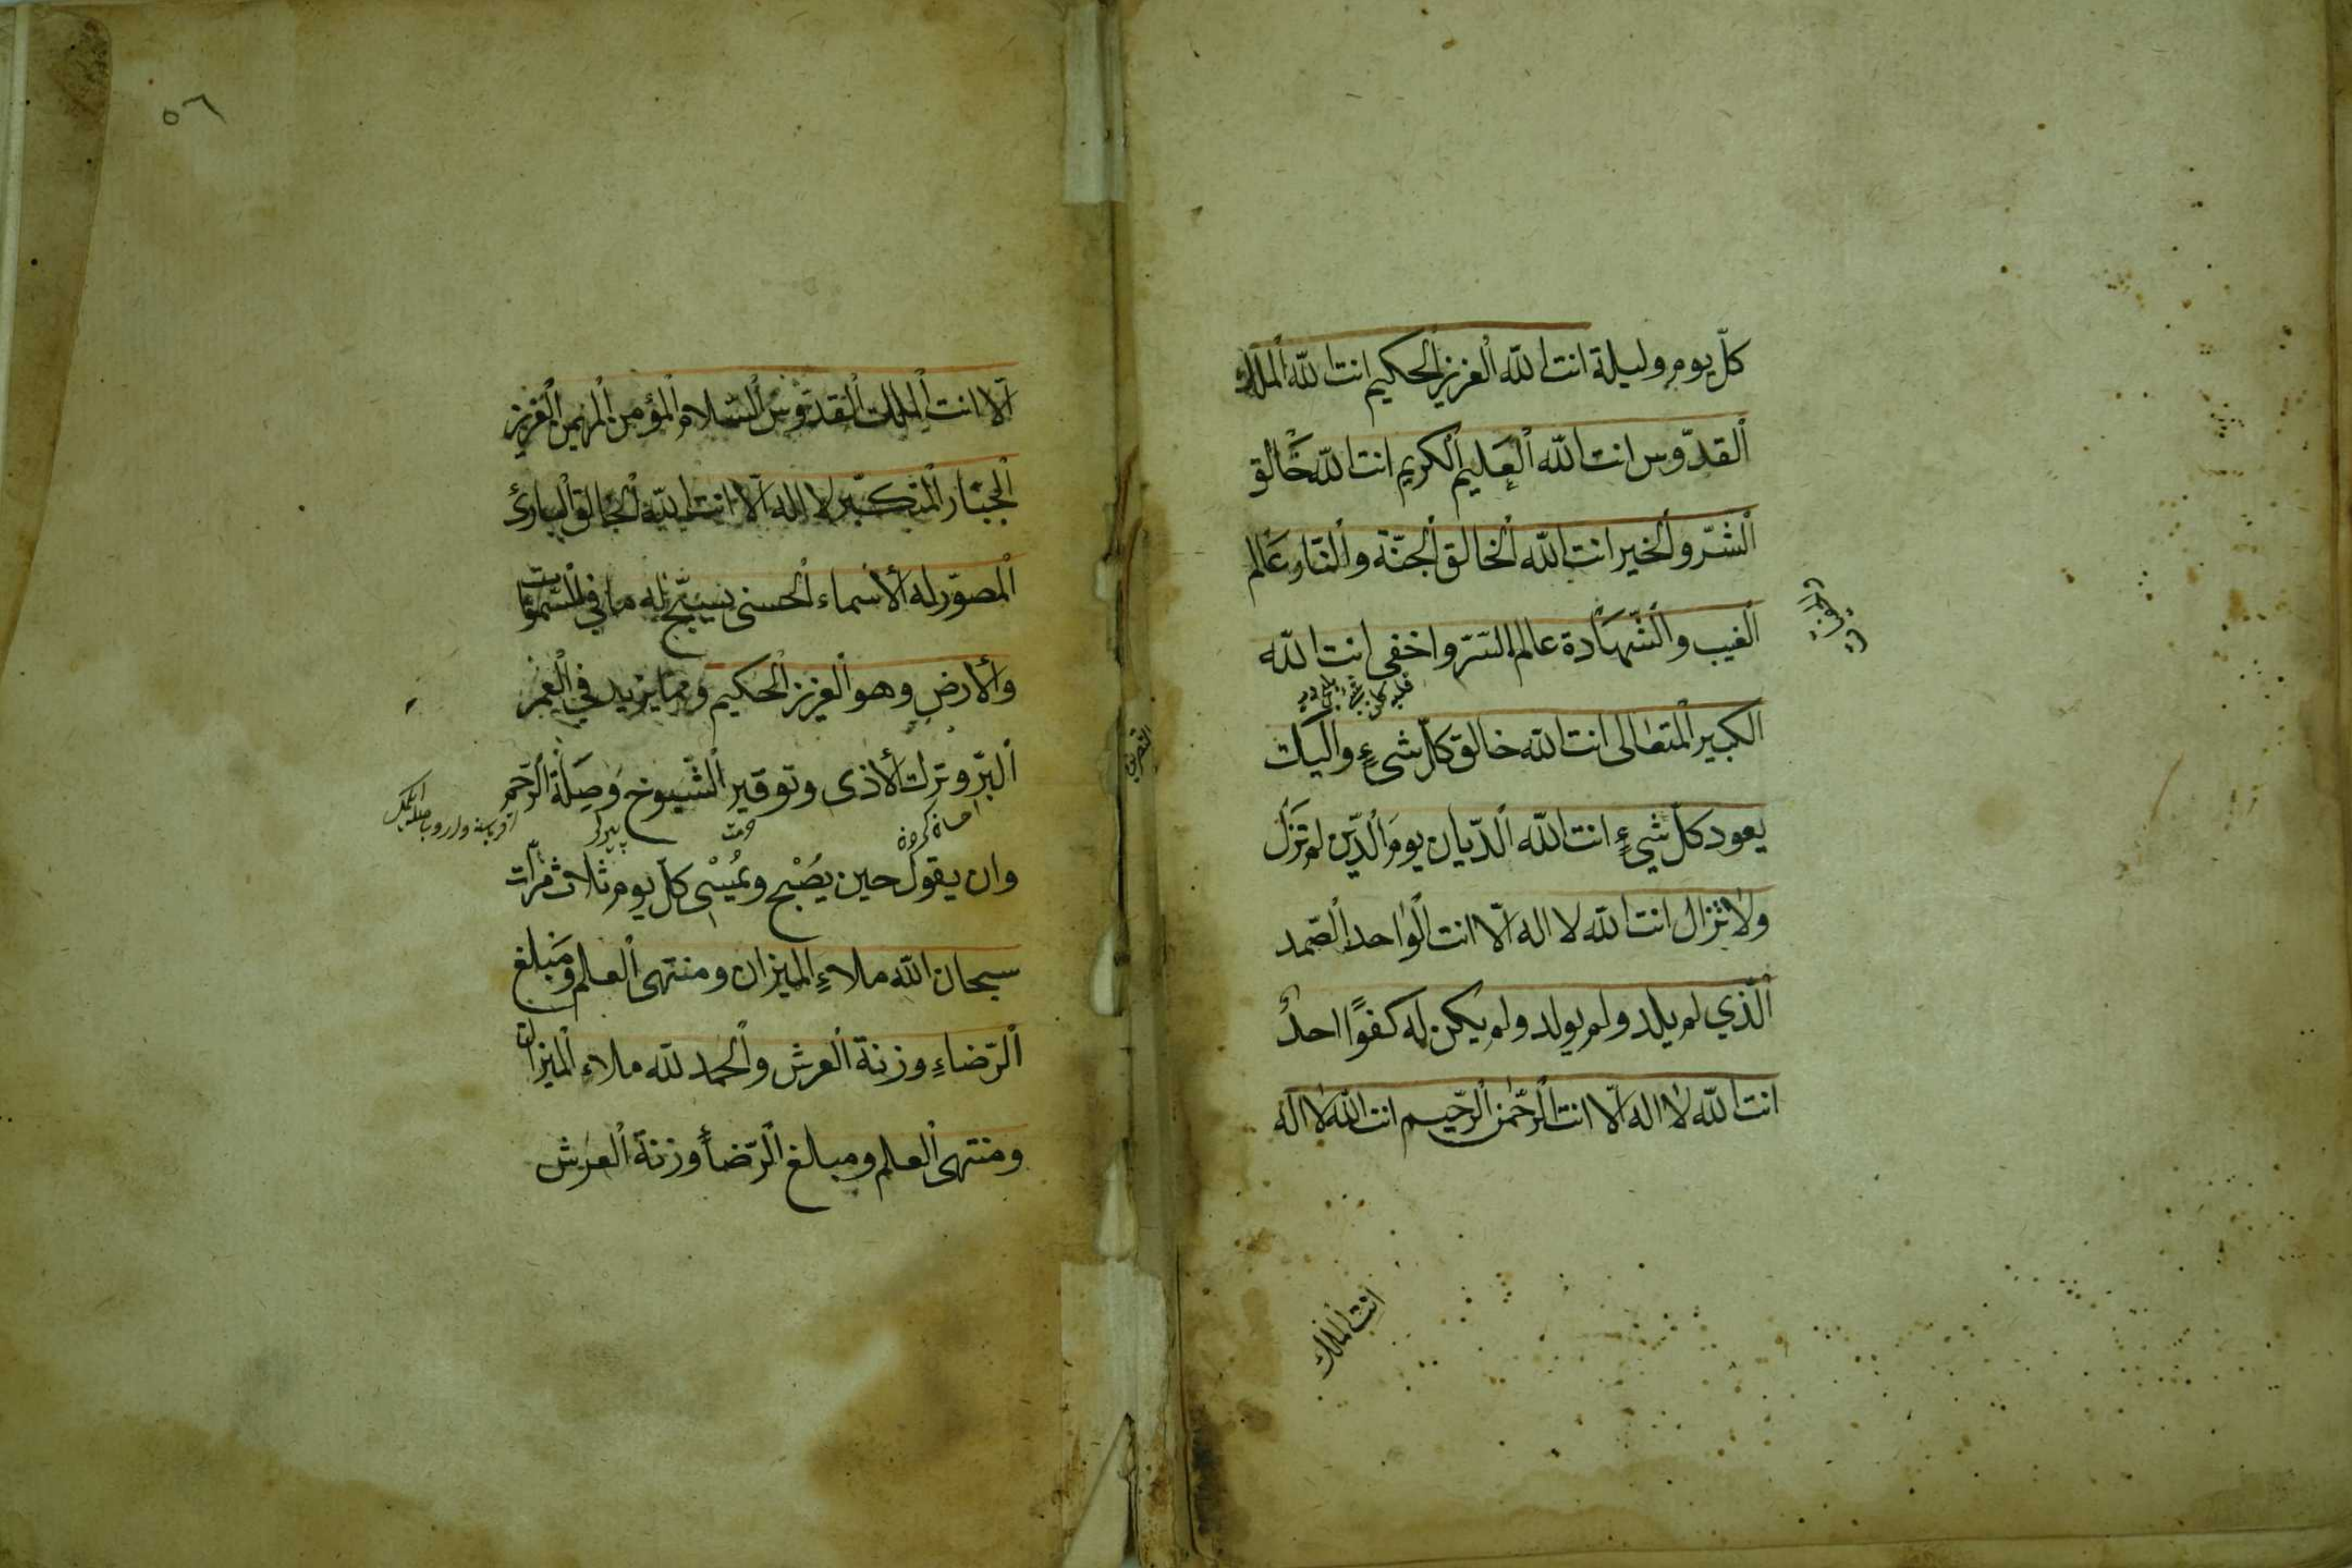 كلّ يوم وليلة انت الله العزيز الحكيم انت الله الملك
القدّوس انت الله العليم الكريم انت الله خالق
الشرّ والخير انت الله الخالق الجنّة والنّار عالم
الغيب والشّهادة عالم السّرّ واخفى انت الله
الكبير المتعالى انت الله خالق كلّ شىءٍ واليك
يعود كلّ شىءٍ انت الله الدّيان يوم الدّين لم تزل
ولا تزال انت الله لا اله الّا انت الواحد الصّمد
الّذي لم يلد ولم يولد ولم يكن له كفوًا احدٌ
انت الله لا اله الّا انت الرّحمن الرّحيم انت الله لا اله
انت الملك
٥٦
الّا انت الملك القدّوس السّلام المؤمن المهيمن العزيز
الجبّار المتكبّر لا اله الّا انت الله الخالق البارئ
المصوّر له الأسماء الحسنى يسبّح له ما في السّموات
والأرض وهو العزيز الحكيم وممّا يزيد في العمر
البرّ وترك الأذى وتوقير الشّيوخ وصِلَة الرّحم
وان يقول حين يُصْبح ويُمْسْى كلّ يوم ثلاث مرّات
سبحان الله ملاءِ الميزان ومنتهى العلم ومَبلغ
الرّضاءِ وزنة العرش والحمد لله ملاءِ الميزان
ومنتهى العلم ومبلغ الرّضأ وزنة العرش